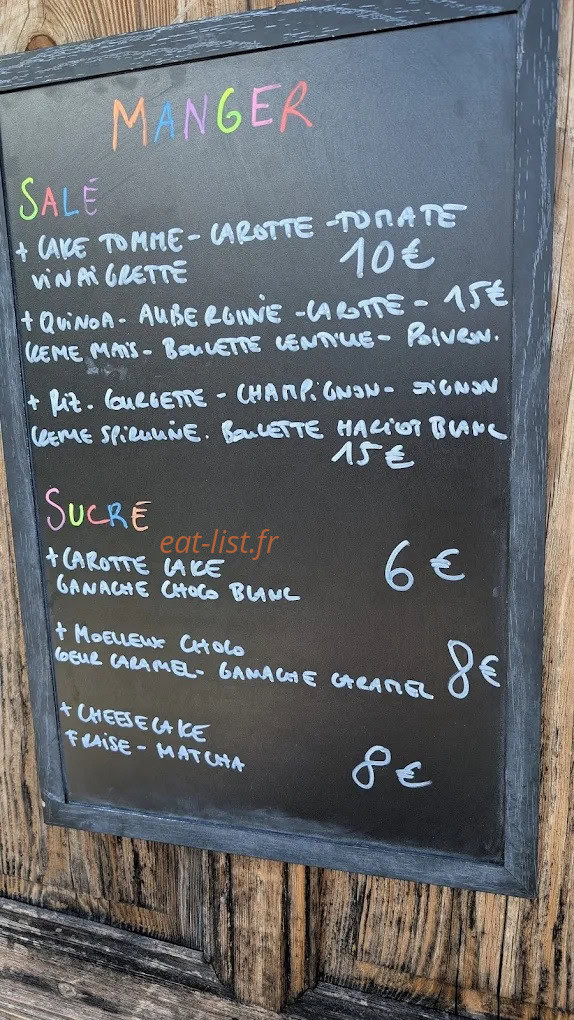 MANGER
SALÉ
+ CAKE TOMME - CAROTTE - TOMATE
VINAIGRETTE 10€
+ QUINOA - AUBERGINE - CAROTTE - 15€
CREME MAÏS - BOULETTE LENTILLE - POIVRON.
+ RIZ. COURGETTE - CHAMPIGNON - OIGNON
CREME SPIRULINE. BOULETTE HARICOT BLANC
15€
SUCRÉ
eat-list.fr
+ CAROTTE CAKE 6€
GANACHE CHOCO BLANC
+ MOELLEUX CHOCO
COEUR CARAMEL - GANACHE CARAMEL 8€
+ CHEESECAKE
FRAISE - MATCHA 8€